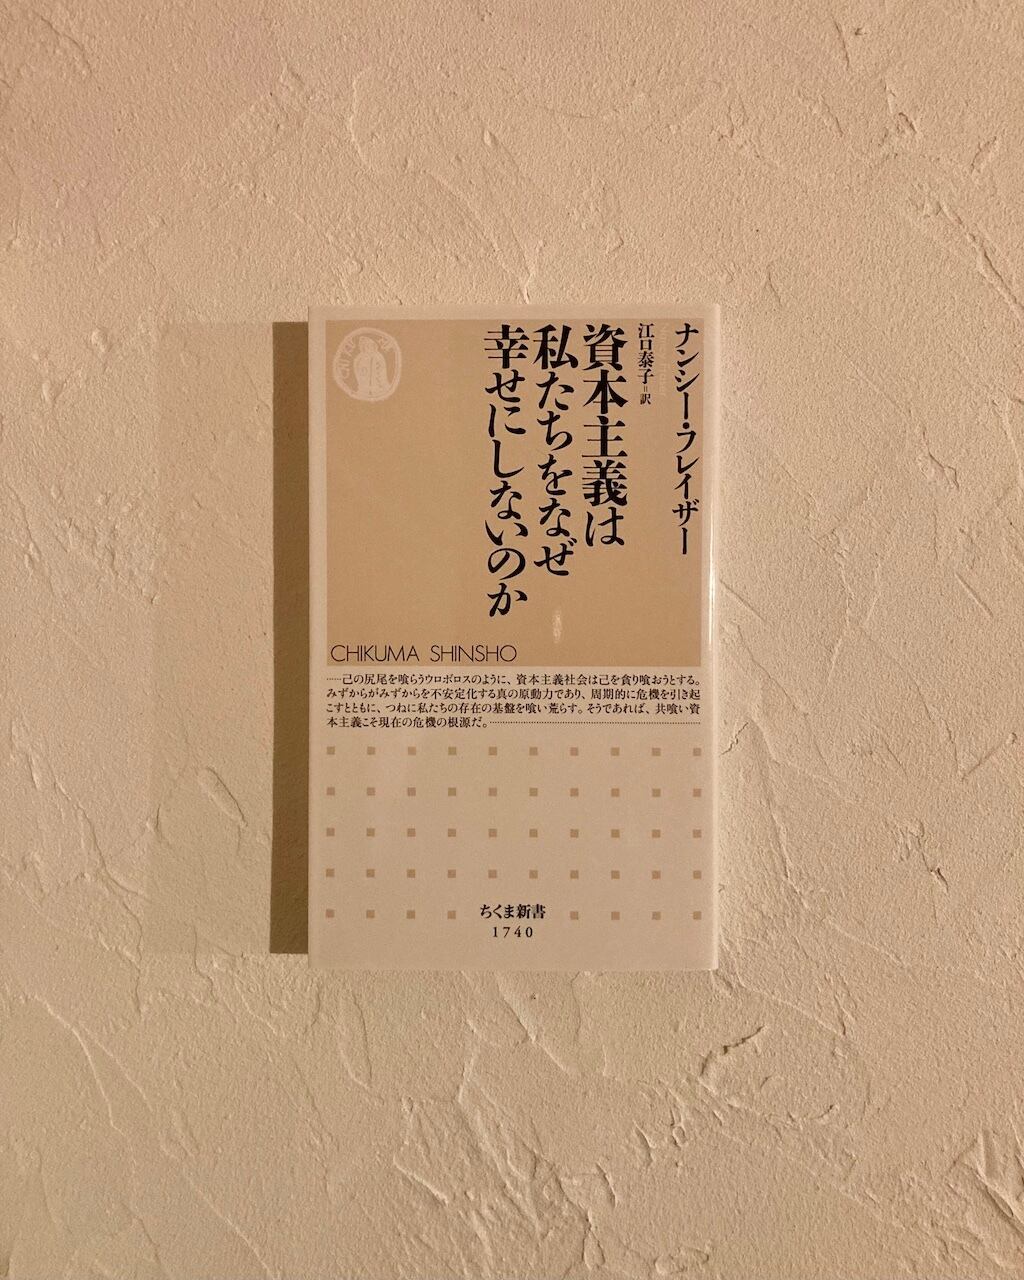 ナンシー・フレイザー
江口泰子=訳
資本主義は
私たちをなぜ
幸せにしないのか
CHIKUMA SHINSHO
……己の尻尾を喰らうウロボロスのように、資本主義社会は己を貪り喰おうとする。
みずからがみずからを不安定化する真の原動力であり、周期的に危機を引き起
こすとともに、つねに私たちの存在の基盤を喰い荒らす。そうであれば、共喰い資
本主義こそ現在の危機の根源だ。……
ちくま新書
1740